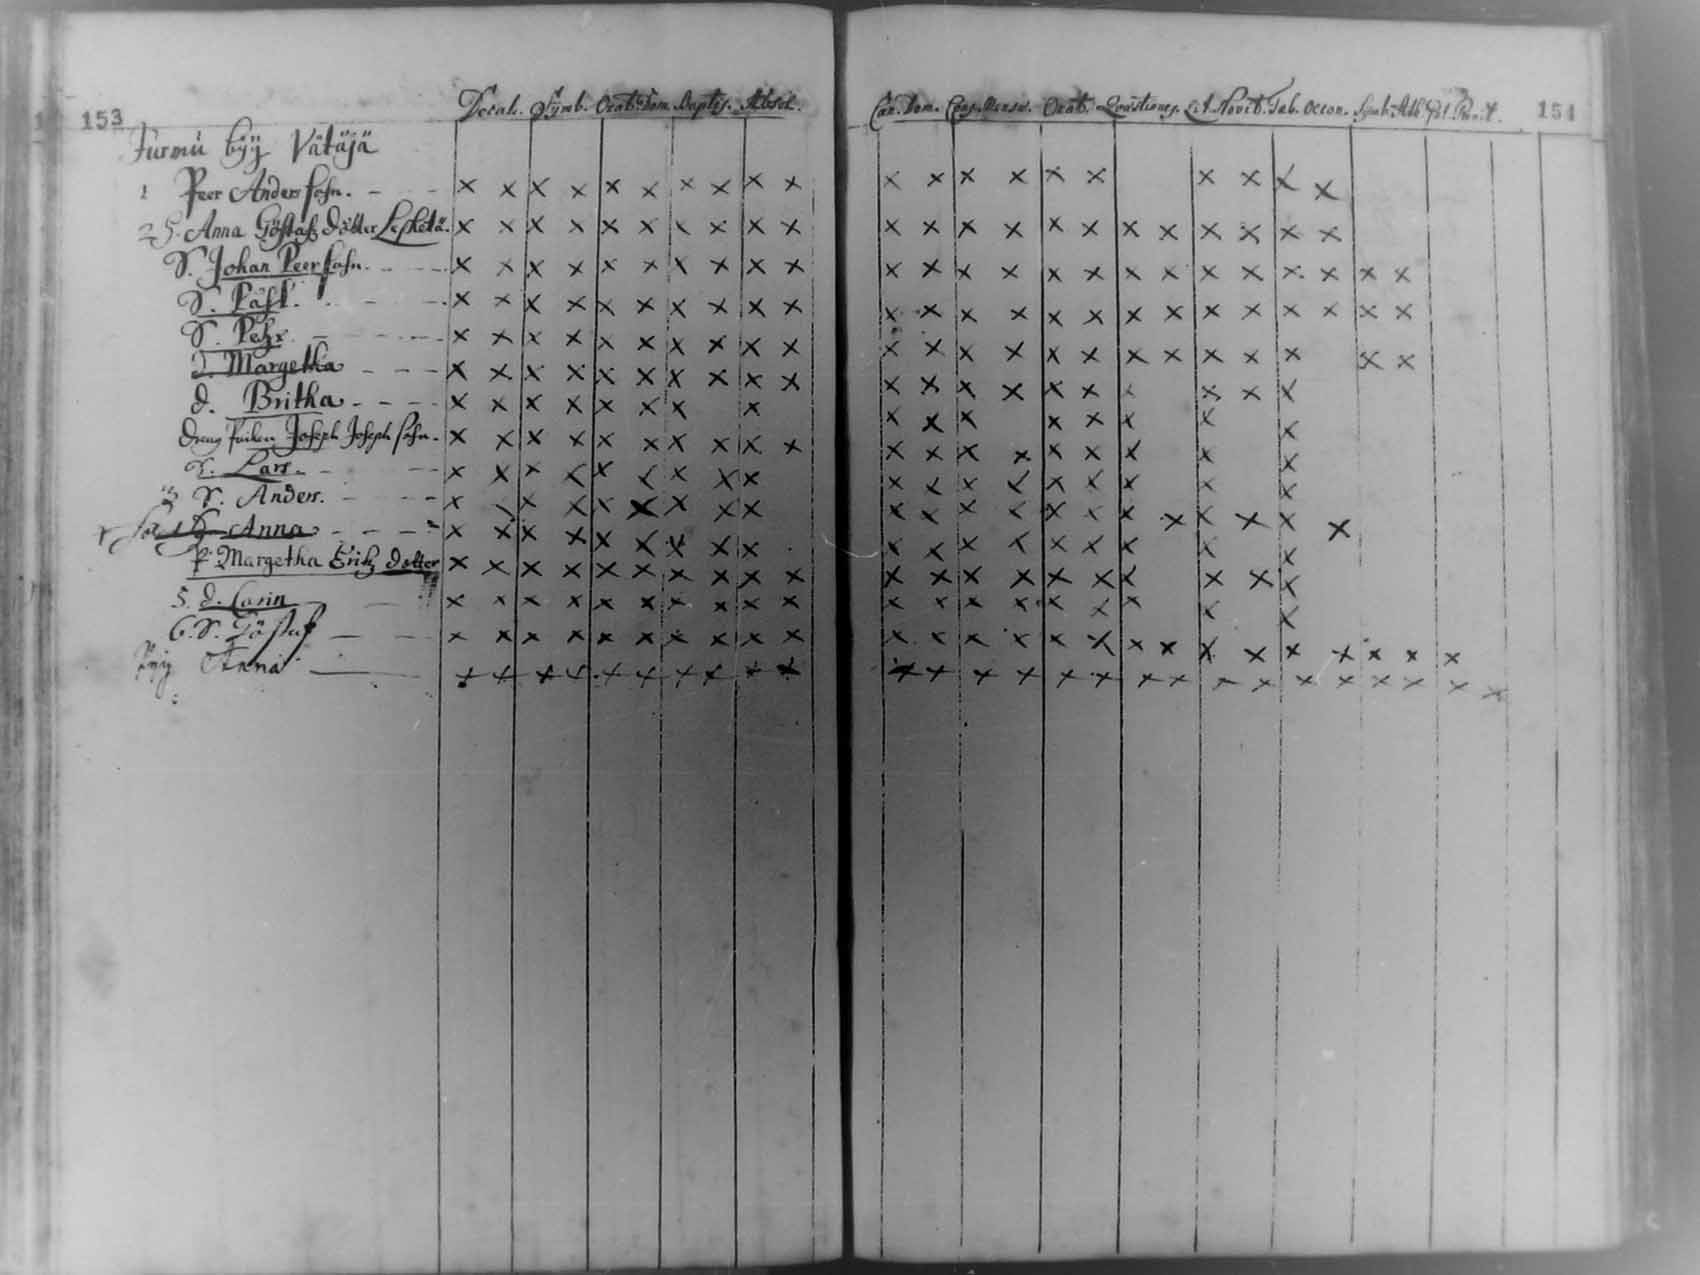 153
Decal. Symb. Orat. Dom. Baptis. Absol.
Furmu byÿ Vätäjä
1 Peer Anders sohn.
2 H. Anna Göstafs dotter Lesketä.
S. Johan Peersohn.
S. Påhl.
S. Pehr
d. Margetha
d. Britha
Joseph Joseph sohn.
S. Lars
S. Anders.
Anna
P. Margetha Erichz dotter
5. d. Carin
6. S. Göstaf
Pÿg Anna
Cœn. Dom. Conf. Mensæ. Orat. Quæstiones. Lit. Novit. Tab. Oecon. Symb. Ath. Ps. Pœn. 154